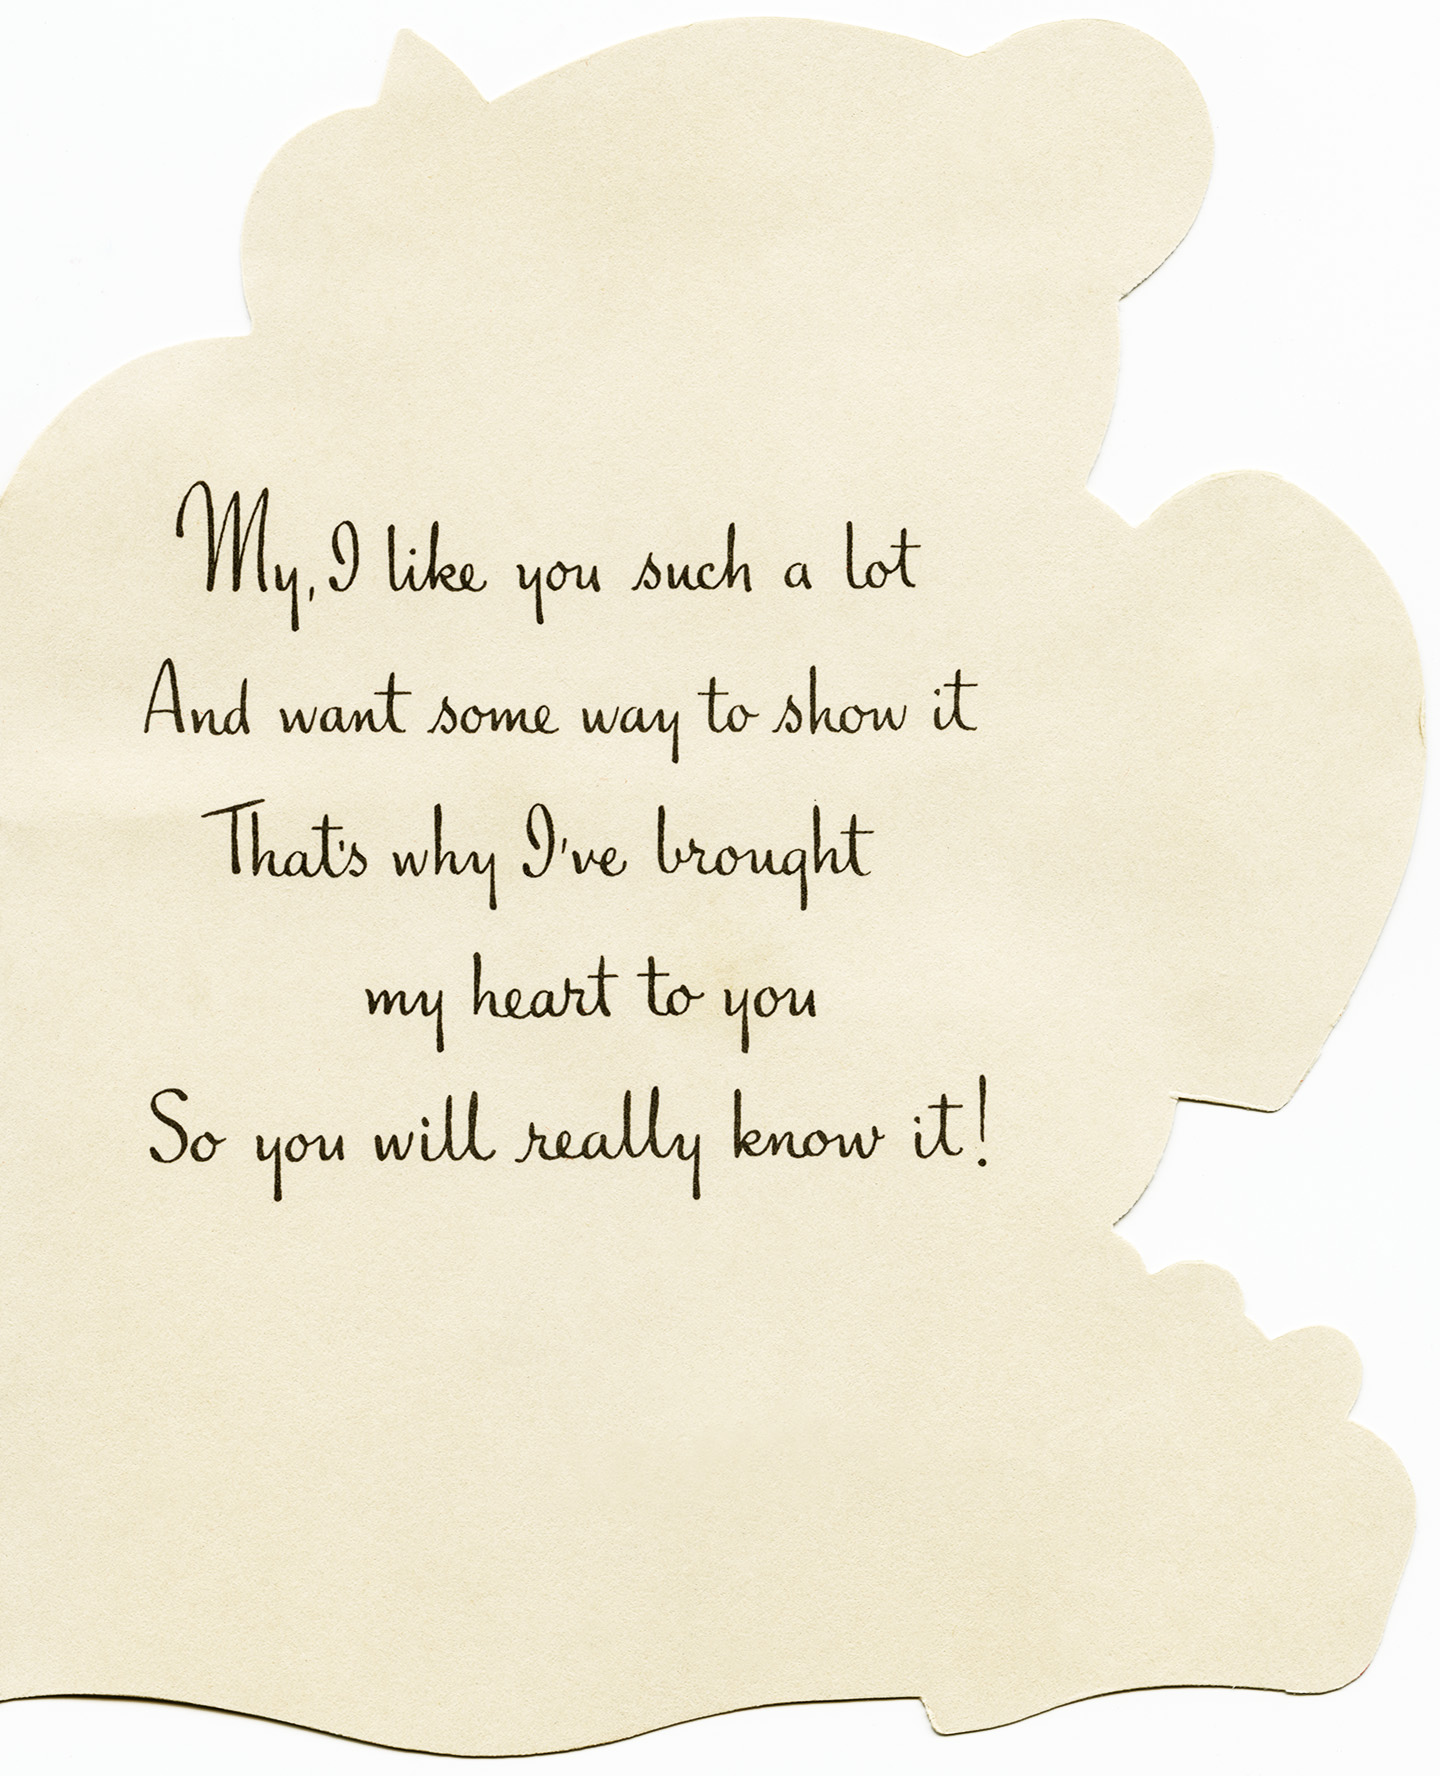 My, I like you such a lot
And want some way to show it
That's why I've brought
my heart to you
So you will really know it!